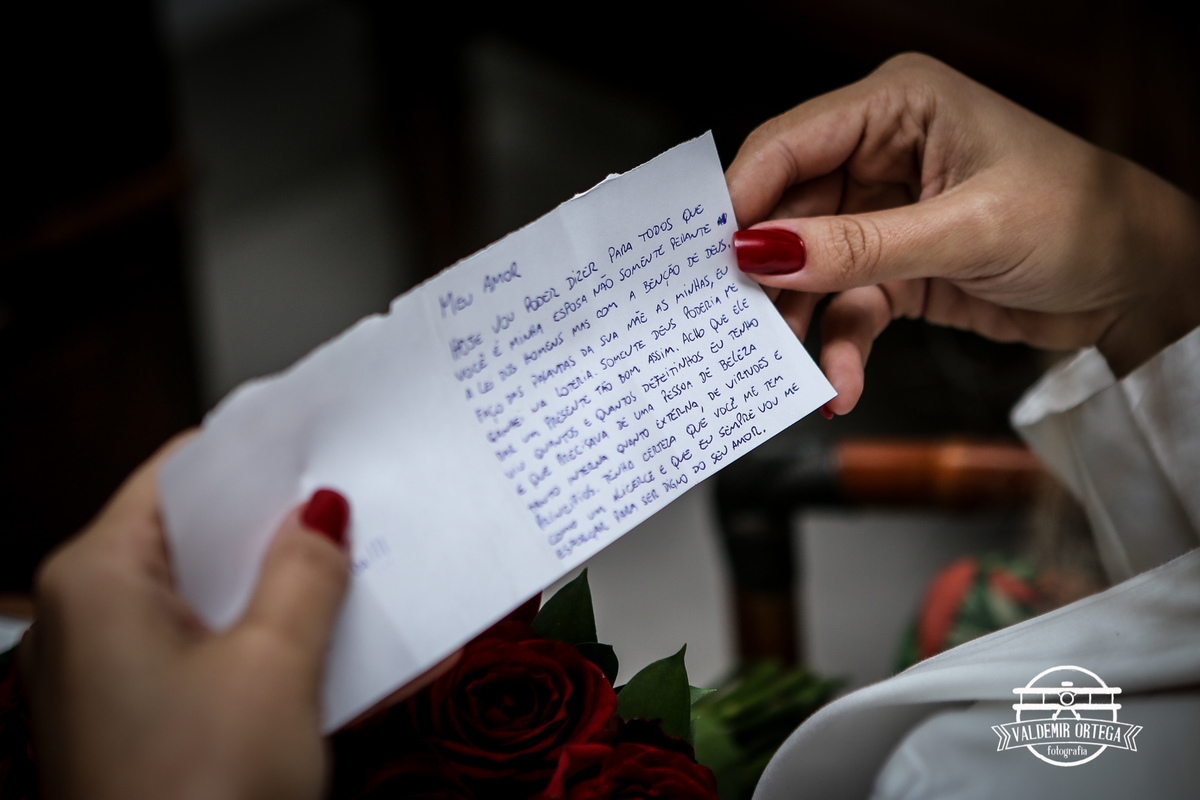 MEU AMOR
HOJE VOU PODER DIZER PARA TODOS QUE
VOCÊ É MINHA ESPOSA NÃO SOMENTE PERANTE
A LEI DOS HOMENS MAS COM A BENÇÃO DE DEUS.
FAÇO DAS PALAVRAS DA SUA MÃE AS MINHAS, EU
GANHEI NA LOTERIA. SOMENTE DEUS PODERIA ME
DAR UM PRESENTE TÃO BOM ASSIM. ACHO QUE ELE
VIU QUANTOS E QUANTOS DEFEITINHOS EU TENHO
E QUE PRECISAVA DE UMA PESSOA DE BELEZA
TANTO INTERNA QUANTO EXTERNA, DE VIRTUDES E
PRINCÍPIOS. TENHO CERTEZA QUE VOCÊ ME TEM
COMO UM ALICERCE E QUE EU SEMPRE VOU ME
ESFORÇAR PARA SER DIGNO DO SEU AMOR.
VALDEMIR ORTEGA
fotografia